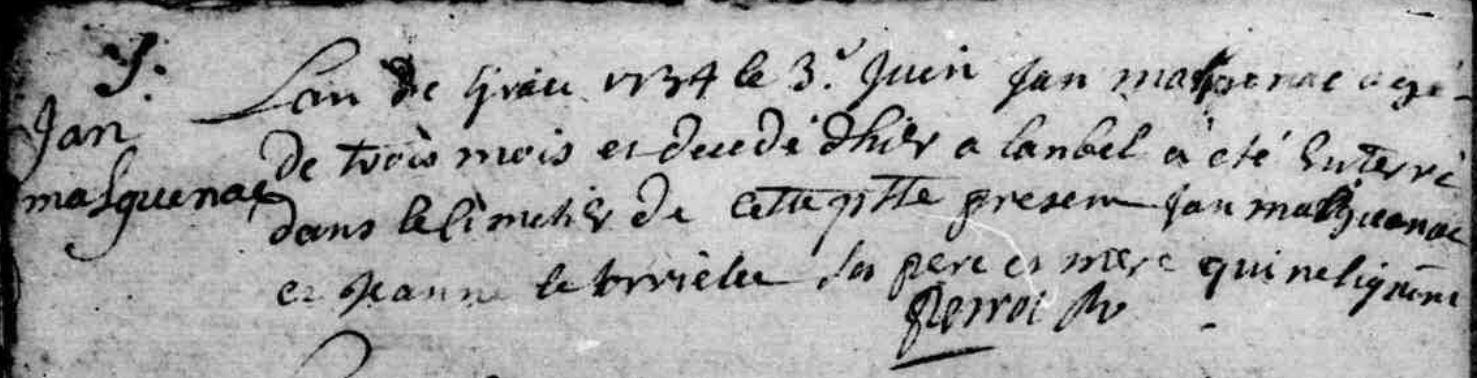 S.
Jan
masquenac
Lan de Grace 1734 le 3.e Juin Jan masquenac agé
de trois mois et decedé dhier a lanbel a eté Enterré
dans le Cimetier de cette ptte present Jan masquenac
et Jeanne le ses pere et mere qui ne signent
Pierrot